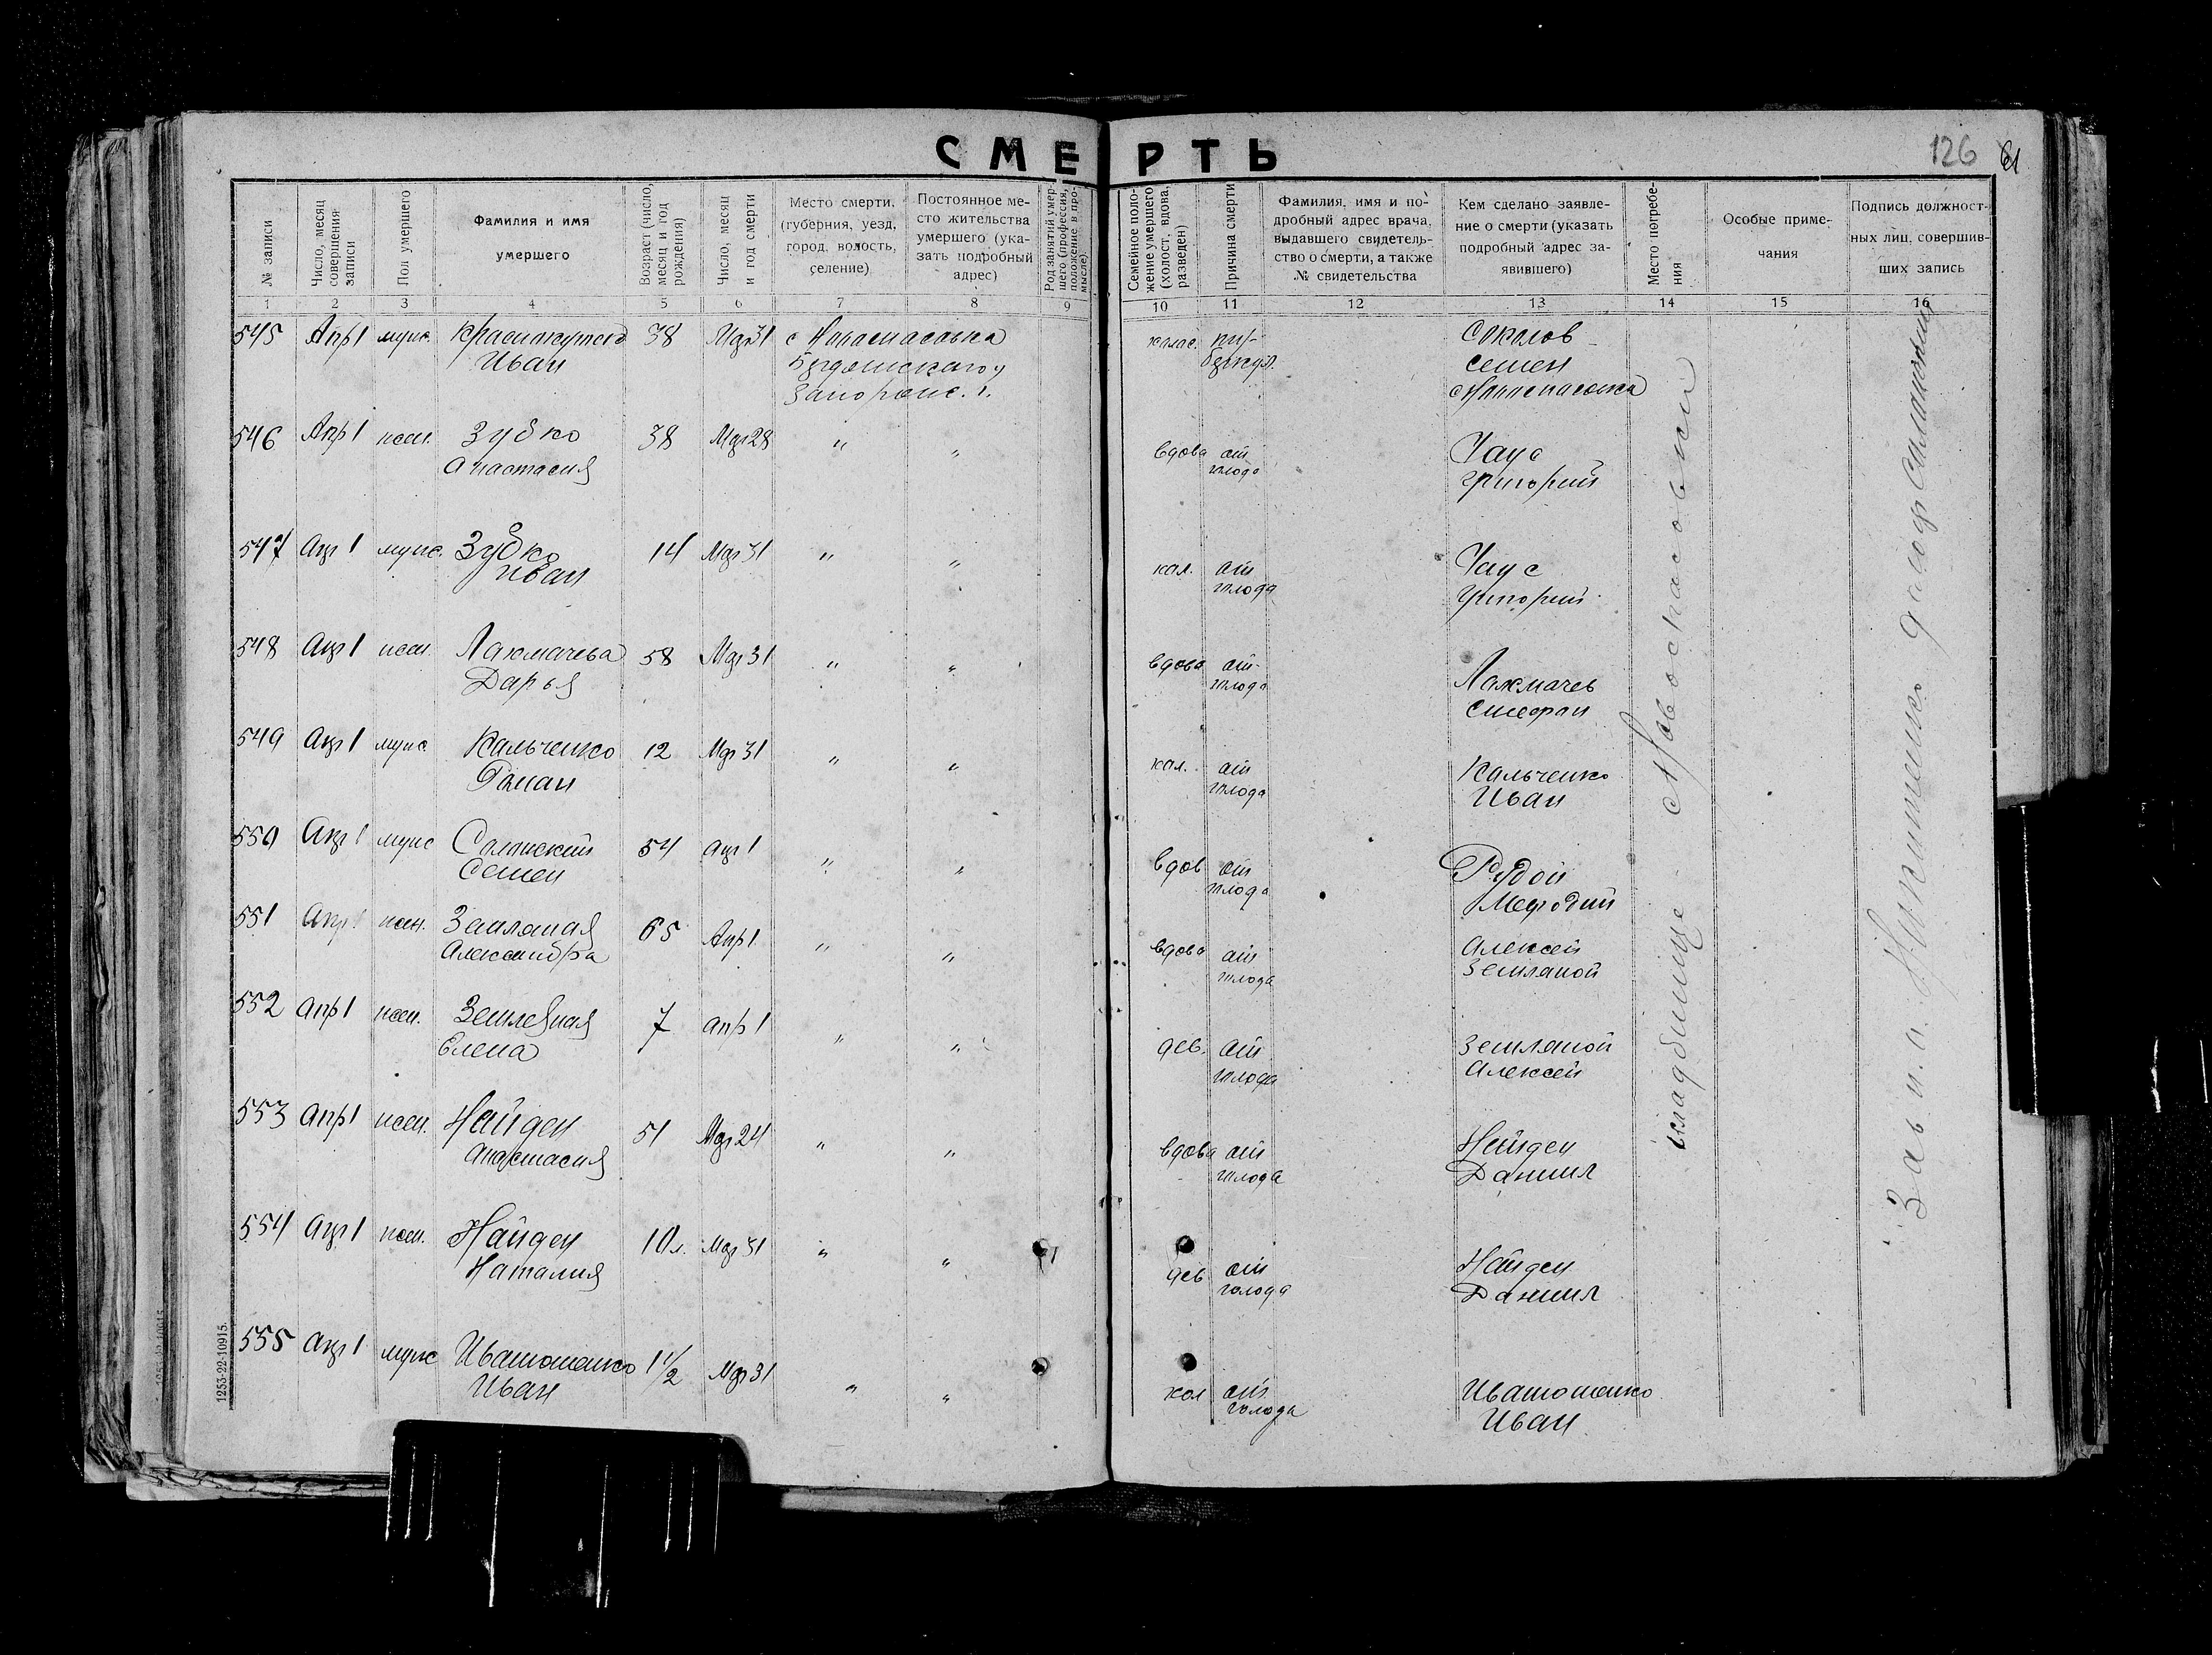 СМЕРТЬ
126 61
№ записи
Число, месяц совершения записи
Пол умершего
Фамилия и имя умершего
Возраст (число, месяц и год рождения)
Число, месяц и год смерти
Место смерти, (губерния, уезд, город, волость, селение)
Постоянное место жительства умершего (указать подробный адрес)
Род занятий умершего (профессия, положение в промысле).
Семейное положение умершего (холост, вдова, разведен)
Причина смерти
Фамилия, имя и подробный адрес врача, выдавшего свидетельство о смерти, а также № свидетельства
Кем сделано заявление о смерти (указать подробный адрес заявившего)
Место погребения
Особые примечания
Подпись должностных лиц, совершивших запись
1 2 3 4 5 6 7 8 9 10 11 12 13 14 15 16
545 Апр 1 муж. Иван 38 Мар 31 с Новоспасовка Бердянского у Запорожс. г. холос. Соколов Семен с Новоспасовка
546 Апр 1 жен. Зубко Анастасия 38 Мар 28 " " вдова от голода Чаус Григорий
547 Апр 1 муж. Зубко Иван 14 Мар 31 " " хол. от голода Чаус Григорий
548 Апр 1 жен. Лакмачева Дарья 58 Мар 31 " " вдова от голода Лакмачев Стефан
549 Апр 1 муж Кальченко Роман 12 Мар 31 " " хол. от голода Кальченко Иван
550 Апр 1 муж Семен 54 Апр 1 " " вдов от голода Рудой Мефодий
551 Апр 1 жен. Земляная Александра 65 Апр 1 " " вдова от голода Алексей Земляной
552 Апр 1 жен. Земляная Елена 7 Апр 1 " " дев. от голода Земляной Алексей
553 Апр 1 жен. Найден Анастасия 51 Мар 24 " " вдова от голода Найден Даниил
554 Апр 1 жен. Найден Наталия 10 л. Мар 31 " " дев от голода Найден Даниил
555 Апр 1 муж Ивашошенко Иван 1 1/2 Мар 31 " " хол от голода Ивашошенко Иван
кладбище с Новоспасовки
Зав п.а. Никитенко
1253-22-10915.